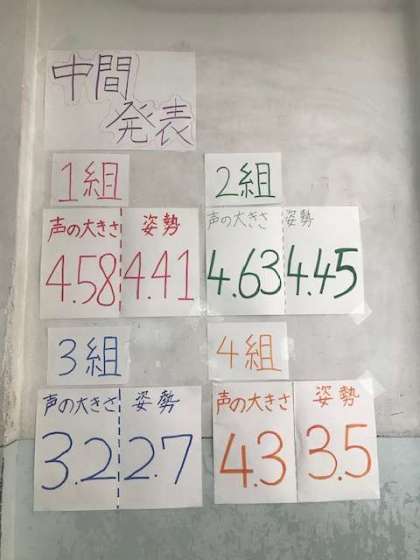 中間
発表
1組
声の大きさ 姿勢
4.58 4.41
2組
声の大きさ 姿勢
4.63 4.45
3組
声の大きさ 姿勢
3.2 2.7
4組
声の大きさ 姿勢
4.3 3.5